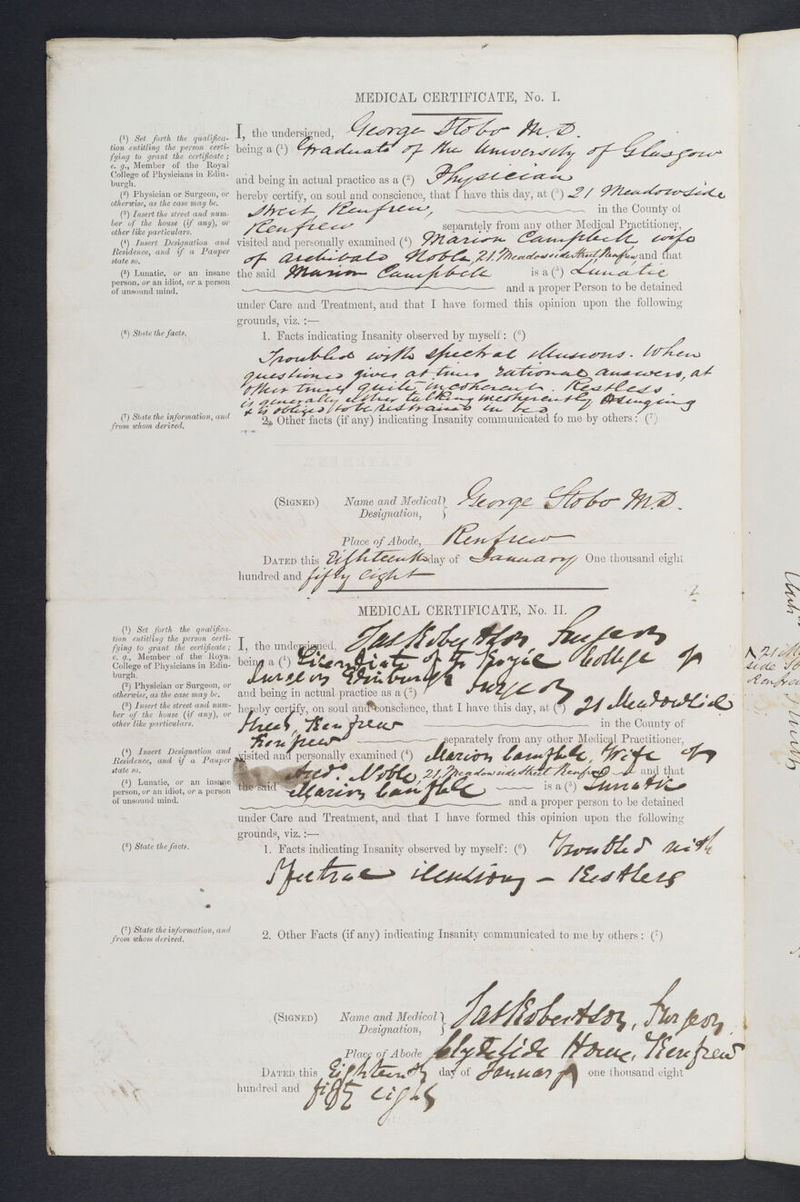 MEDICAL CERTIFICATE, No. I.
(1) Set forth the qualifica-
tion entitling the person certi-
fying to grant the certificate;
e. g., Member of the Royal
College of Physicians in Edin-
burgh.
(2) Physician or Surgeon, or
otherwise, as the case may be.
(3) Insert the street and num-
ber of the house (if any), or
other like particulars.
(4) Insert Designation and
Residence, and if a Pauper
state so.
(5) Lunatic, or an insane
person, or an idiot, or a person
of unsound mind.
(6) State the facts.
(7) State the information, and
from whom derived.
I, the undersigned, George Stobo M.D.
being a (1) Graduate of the University of Glasgow
and being in actual practice as a (2) Physician
hereby certify, on soul and conscience, that I have this day, at (3) 21 Meadowside
Street Renfrew, in the County of
Renfrew separately from any other Medical Practitioner,
visited and personally examined (4) Marion Campbell wife
of Archibald Noble, 21 Meadowside Street Renfrew and that
the said Marion Campbell is a (5) Lunatic
and a proper Person to be detained
under Care and Treatment, and that I have formed this opinion upon the following
grounds, viz. :—
1. Facts indicating Insanity observed by myself: (6)
Troubled with spectral illusions. When
questioned gives at times rational answers, at
other times quite incoherent. Restless
is generally either talking incoherently or singing
& is obliged to be restrained in bed
2. Other facts (if any) indicating Insanity communicated to me by others: (7)
(SIGNED) Name and Medical Designation, George Stobo M.D.
Place of Abode, Renfrew
DATED this Eighteenth day of January One thousand eight
hundred and fifty eight
MEDICAL CERTIFICATE, No. II.
(1) Set forth the qualifica-
tion entitling the person certi-
fying to grant the certificate;
e. g., Member of the Royal
College of Physicians in Edin-
burgh.
(2) Physician or Surgeon, or
otherwise, as the case may be.
(3) Insert the street and num-
ber of the house (if any), or
other like particulars.
(4) Insert Designation and
Residence, and if a Pauper
state so.
(5) Lunatic, or an insane
person, or an idiot, or a person
of unsound mind.
(6) State the facts.
(7) State the information, and
from whom derived.
I, the undersigned, Jas Robertson Surgeon
being a (1) Licentiate of the Royal College of
Surgeons Edinburgh
and being in actual practice as a (2) Surgeon
hereby certify, on soul and conscience, that I have this day, at (3) 21 Meadowside
Street, Renfrew in the County of
Renfrew separately from any other Medical Practitioner,
visited and personally examined (4) Marion Campbell, Wife of
Archd. Noble, 21 Meadowside Street Renfrew and that
the said Marion Campbell is a (5) Lunatic
and a proper person to be detained
under Care and Treatment, and that I have formed this opinion upon the following
grounds, viz. :—
1. Facts indicating Insanity observed by myself: (6) Troubled with
Spectral illusions – Restless
2. Other Facts (if any) indicating Insanity communicated to me by others: (7)
(SIGNED) Name and Medical Designation, Jas Robertson, Surgeon
Place of Abode Clydeside House, Renfrew
DATED this Eighteenth day of January one thousand eight
hundred and fifty eight